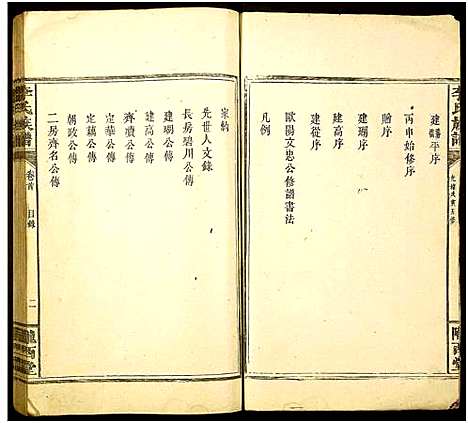 李氏族譜
隴西堂
建平序
丙申始修序
贈序
建瑚序
建高序
建從序
歐陽文忠公修譜書法
凡例
家納
先世人文錄
長房碧川公傳
建瑚公傳
建高公傳
定華公傳
定藕公傳
朝政公傳
二房齊名公傳
李氏族譜
卷首
目錄
二
隴西堂